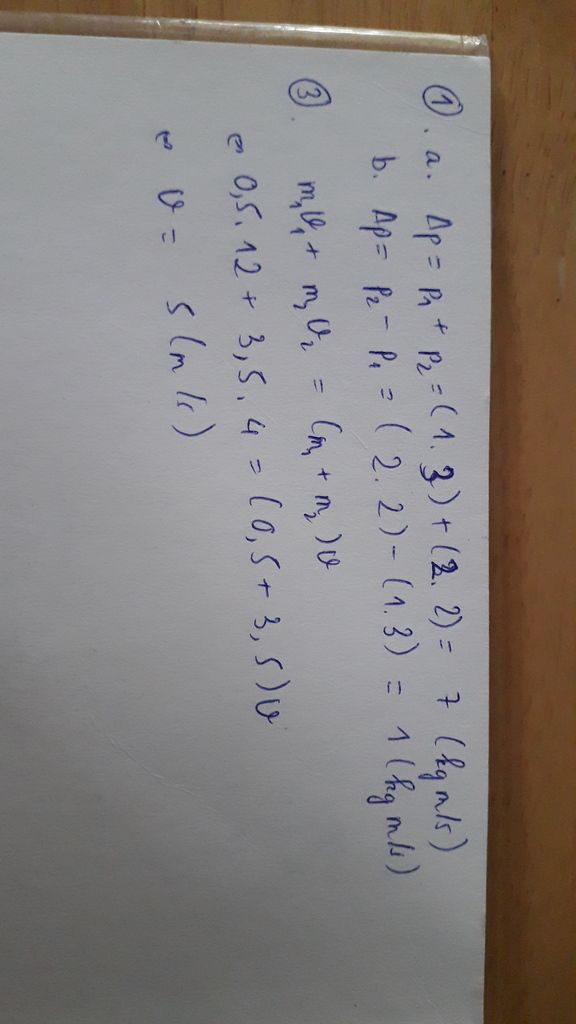 ① . a. Δp = p₁ + p₂ = (1.3) + (2.2) = 7 (kg m/s)
b. Δp = p₂ - p₁ = (2.2) - (1.3) = 1 (kg m/s)
③ .
m₁v₁ + m₂v₂ = (m₁ + m₂)v
⇔ 0,5.12 + 3,5.4 = (0,5 + 3,5)v
⇔ v = 5 (m/s)